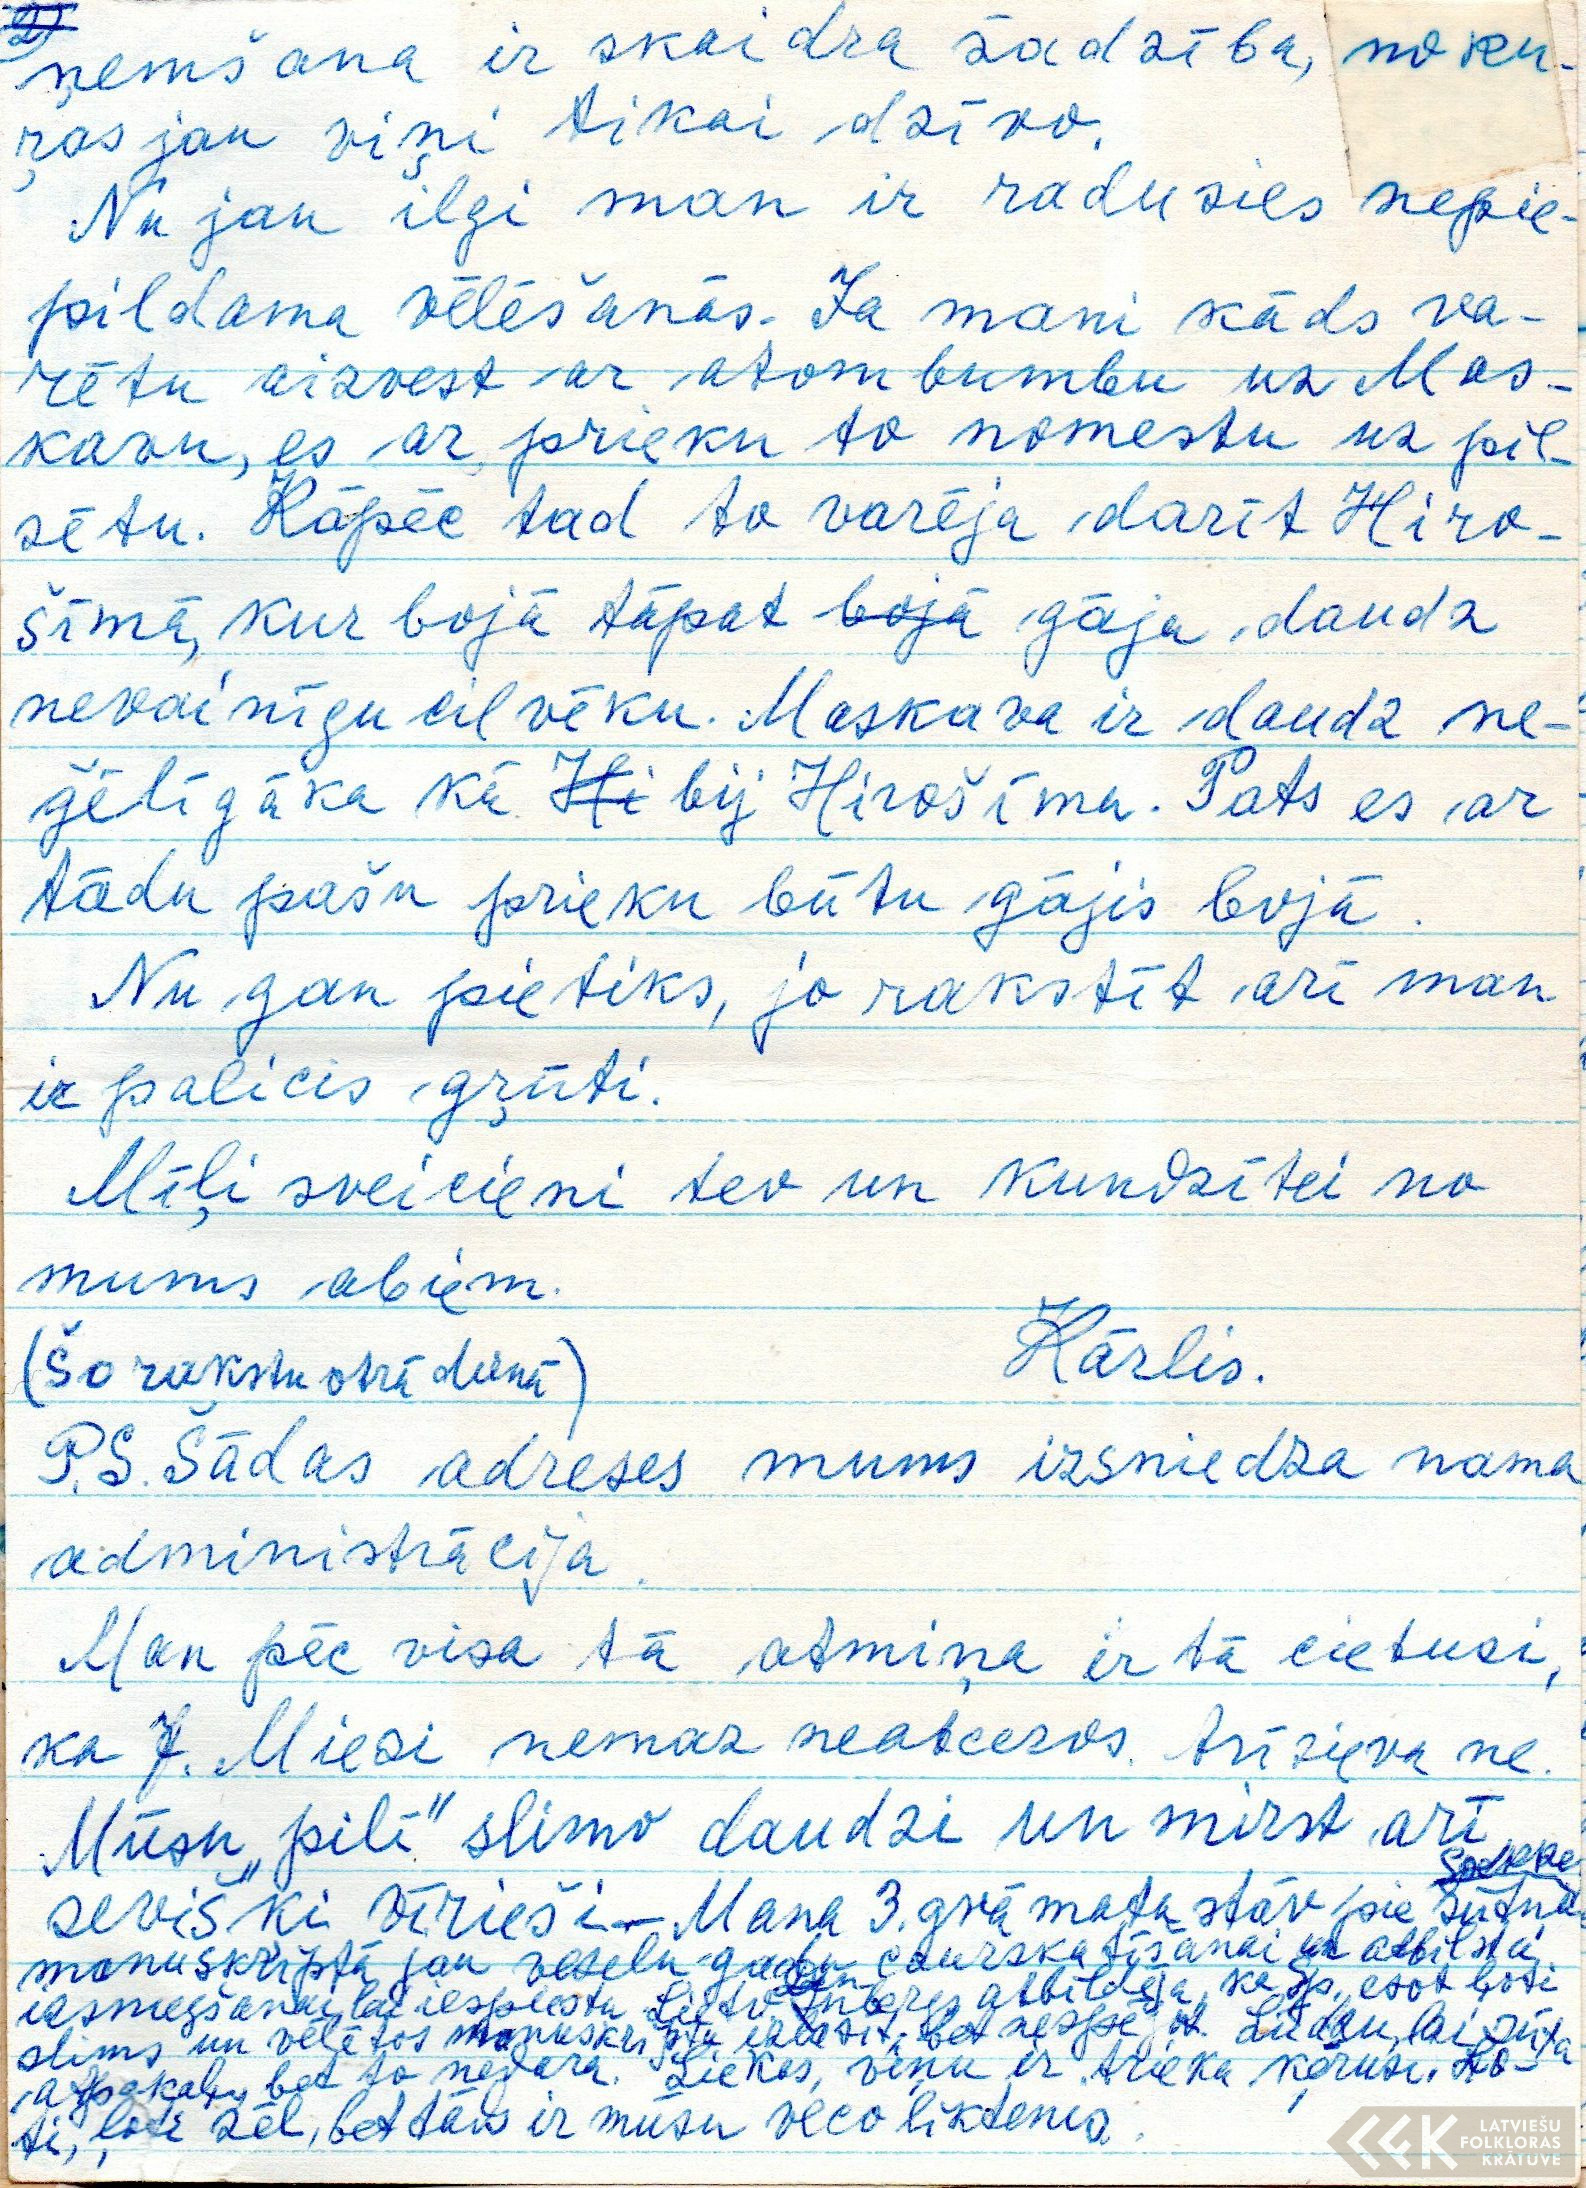 2)
ņemšana ir skaidra zādzība, no ku-
ŗas jau viņi tikai dzīvo.
Nu jau ilgi man ir radusies nepie-
pildama vēlēšanās. Ja mani kāds va-
rētu aizvest ar atombumbu uz Mas-
kavu, es ar prieku to nomestu uz pil-
sētu. Kāpēc tad to varēja darīt Hiro-
šīmā, kur bojā tāpat bojā gāja daudz
nevainīgu cilvēku. Maskava ir daudz ne-
ģēlīgāka kā Hi bij Hirošīma. Pats es ar
tādu pašu prieku būtu gājis bojā.
Nu gan pietiks, jo rakstīt arī man
ir palicis gŗūti.
Mīļi sveicieni tev un kundzītei no
mums abiem.
(Šo rakstu otrā dienā) Kārlis.
P.S. Šādas adreses mums izsniedza nama
administrācija.
Man pēc visa tā atmiņa ir tā cietusi,
ka J. Miesi nemaz neatceros. Arī sieva ne.
Mūsu „pilī" slimo daudzi un mirst arī
sevišķi vīrieši – Mana 3. grāmata stāv pie
manuskriptā jau veselu gadu caurskatīšanai un atbilstu
iesniegšanai, lai iespiestu. atbildēja, ka Sp. esot ļoti
slims un vēlētos manuskriptu izlasīt, bet nespējot. Lūdzu, lai sūta
atpakaļ, bet to nedara. Liekas, viņu ir trieka ķērusi. Ļo-
ti, ļoti žēl, bet tāds ir mūsu veco liktenis.
LATVIEŠU
FOLKLORAS
KRĀTUVE